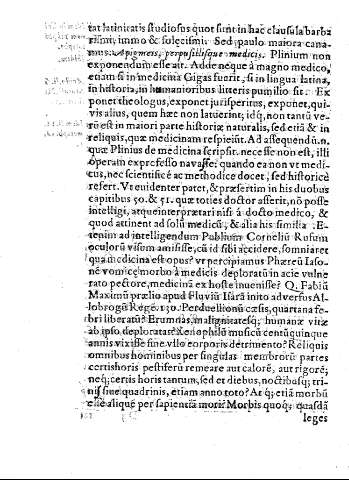 tat latinitatis studiosus quot sunt in hac clausula barba
rismi, immo & solœcismi. Sed paulo maiora cana-
mus. Apigmeis, perpusillisque medicis. Plinium non
exponendum esse ait. Adde neq; à magno medico,
etiam si in medicina Gigas fuerit, si in lingua latina,
in historia, in humanioribus litteris pumilio sit. Ex
ponet theologus, exponet iurisperitus, exponet, qui-
vis alius, quem hæc non latuerint; idq́, non tantù ve-
rū est in maiori parte historiæ naturalis, sed etiā & in
reliquis, quæ medicinam respiciūt. Ad assequendū n.
quæ Plinius de medicina scripsit, necesse non est, illi
operam ex professo navasse: quando ea non vt medi-
cus, nec scientificè ac methodicè docet, sed historicè
refert. Vt euidenter patet, & præsertim in his duobus
capitibus 50. & 51. quæ toties doctor asserit, nō posse
intelligi, atque interpræatari nisi à docto medico, &
quod attinent ad solū medicū, & alia his similia. E-
tenim ad intelligendum Publium Corneliū Rufum
oculorū visum amisisse, cū id sibi accidere, somniaret
qua medicina est opus? vt percipiamus Phæreū Iaso-
nē vomicæ morbo à medicis deploratū in acie vulne
rato pectore, medicinā ex hoste inuenisse? Q. Fabiū
Maximū prælio apud Fluviū Isarā inito adversus Al-
lobrogū Rēge. 130. Perduellionū cæsis, quartana fe-
bri liberatū? Erumnas, malignitatesq; humanæ vitæ
ab ipso deploratas? Xenophilū musicū centū quinque
annis vixisse sine vllo corporis detrimento? Reliquis
omnibus hominibus per singulas membrorū partes
certis horis pestiferū remeare aut calorē, aut rigorē;
neq; certis horis tantum, sed et diebus, noctibusq; tri-
nis siue quadrinis, etiam anno toto? At q; etiā morbū
esse aliquē per sapientiā mori? Morbis quoq; quasdā
leges